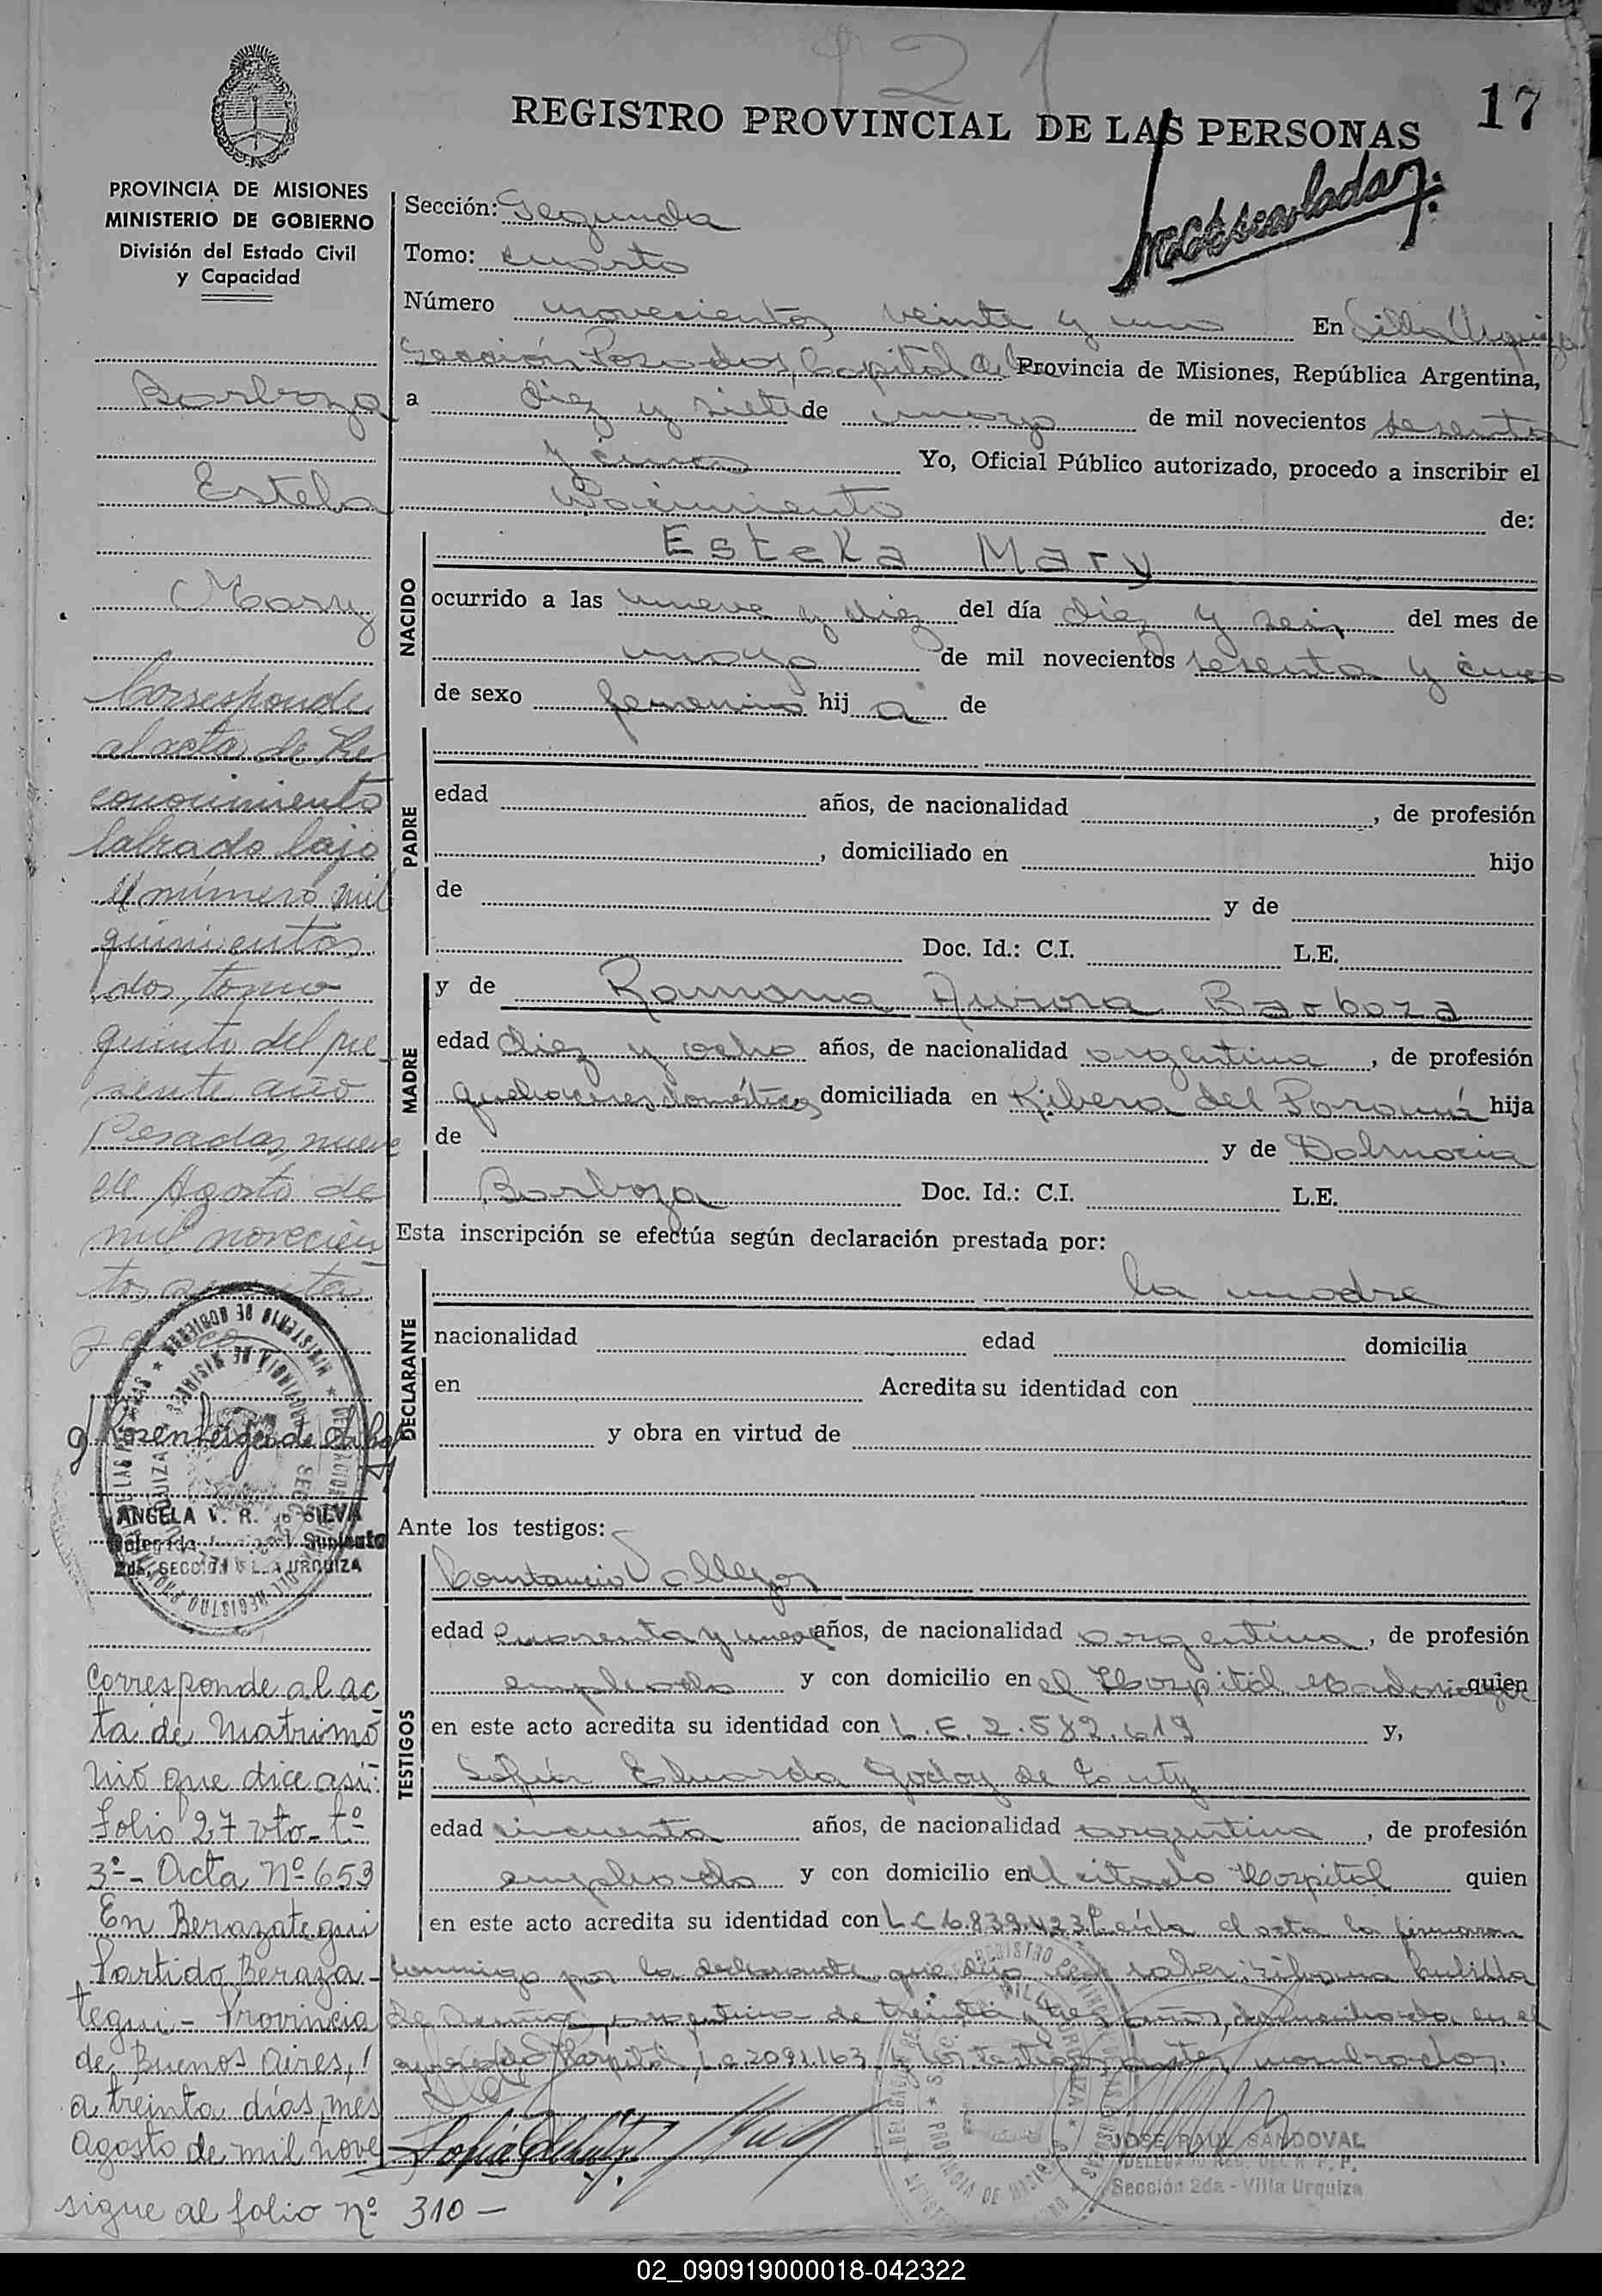 121
17
REGISTRO PROVINCIAL DE LAS PERSONAS
PROVINCIA DE MISIONES
MINISTERIO DE GOBIERNO
División del Estado Civil
y Capacidad
Barboza
Estela
Mary
Corresponde
al acta de Re
conocimiento
labrado bajo
el número mil
quinientos
dos, tomo
quinto del pre
sente año
Posadas, nueve
de Agosto de
mil novecien
tos
ANGELA V. R. de SILVA
Suplente
2da. SECCIÓN VILLA URQUIZA
Corresponde al ac
ta de Matrimo
nio que dice así:
Folio 27 vto - tº
3º - Acta Nº 653
En Berazategui
Partido Beraza-
tegui - Provincia
de Buenos Aires,
a treinta días, mes
agosto de mil nove
sigue al folio nº 310 -
Sección: Segunda
Tomo: cuarto
Número novecientos veinte y uno En Villa Urquiza
Sección Posadas, Capital de Provincia de Misiones, República Argentina,
a diez y siete de mayo de mil novecientos sesenta
y cinco Yo, Oficial Público autorizado, procedo a inscribir el
Nacimiento de:
NACIDO
Estela Mary
ocurrido a las nueve y diez del día diez y seis del mes de
mayo de mil novecientos sesenta y cinco
de sexo femenino hij a de
PADRE
edad años, de nacionalidad , de profesión
, domiciliado en hijo
de y de
Doc. Id.: C.I. L.E.
MADRE
y de Ramona Aurora Barboza
edad diez y ocho años, de nacionalidad argentina , de profesión
quehaceres domésticos domiciliada en Ribera del Paraná hija
de y de Dalmacia
Barboza Doc. Id.: C.I. L.E.
Esta inscripción se efectúa según declaración prestada por:
DECLARANTE
la madre
nacionalidad edad domicilia
en Acredita su identidad con
y obra en virtud de
Ante los testigos:
TESTIGOS
Constancio Vallejos
edad cuarenta y nueve años, de nacionalidad argentina , de profesión
empleado y con domicilio en el Hospital Madariaga quien
en este acto acredita su identidad con L.E. 2.582.619 y,
Sofía Eduarda Godoy de
edad cincuenta años, de nacionalidad argentina , de profesión
empleada y con domicilio en el citado Hospital quien
en este acto acredita su identidad con L.C 6.839.423. Leída el acta la firmaron
conmigo por la declarante que dijo no saber,
de argentina de treinta y tres años, domiciliada en el
Hospital, L.C 2091163 y los testigos antes nombrados.
JOSE RAUL SANDOVAL
Sección 2da - Villa Urquiza
02_090919000018-042322